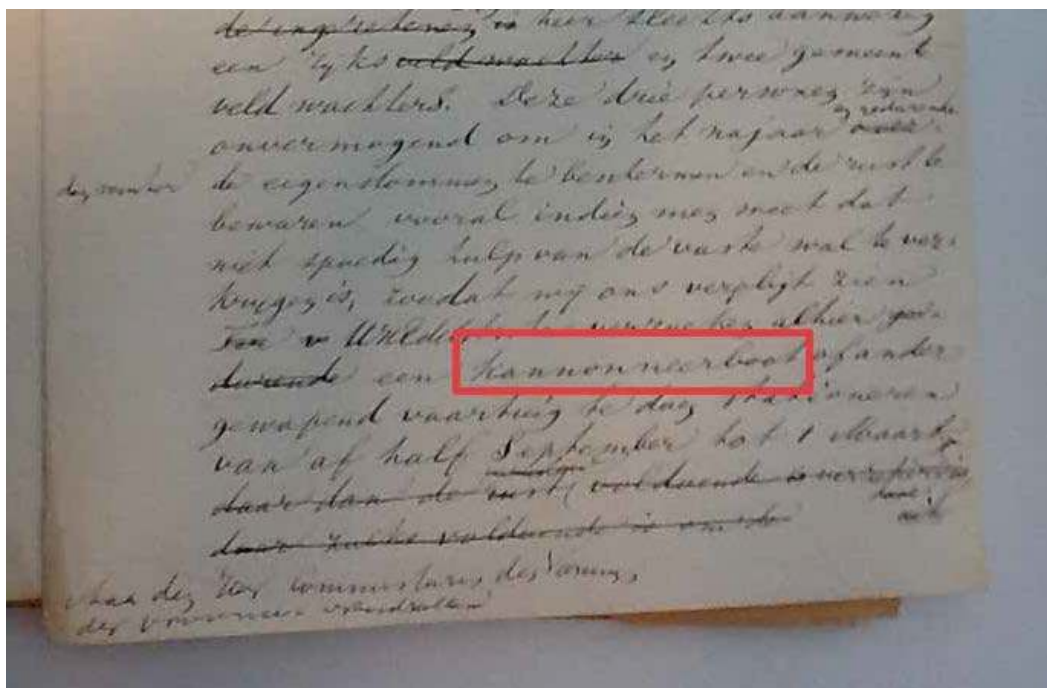 de ingezetenen, is hier slechts aanwezig
een ryks veldwachter en twee gemeente
veldwachters. Deze drie personen zijn
en gedurende
onvermogend om in het najaar
de eigendommen te beschermen en de rust te
bewaren vooral indien men weet dat
niet spoedig hulp van de vaste wal te ver
krygen is, zoodat wij ons verpligt zien
te verzoeken alhier ge
durende een kannonneerboot of ander
gewapend vaartuig te doen stationeren
van af half September tot 1 Maart,
daar dan de rust voldoende is
daar zulks voldoende is om de
Aan den Heer Commissaris des Konings